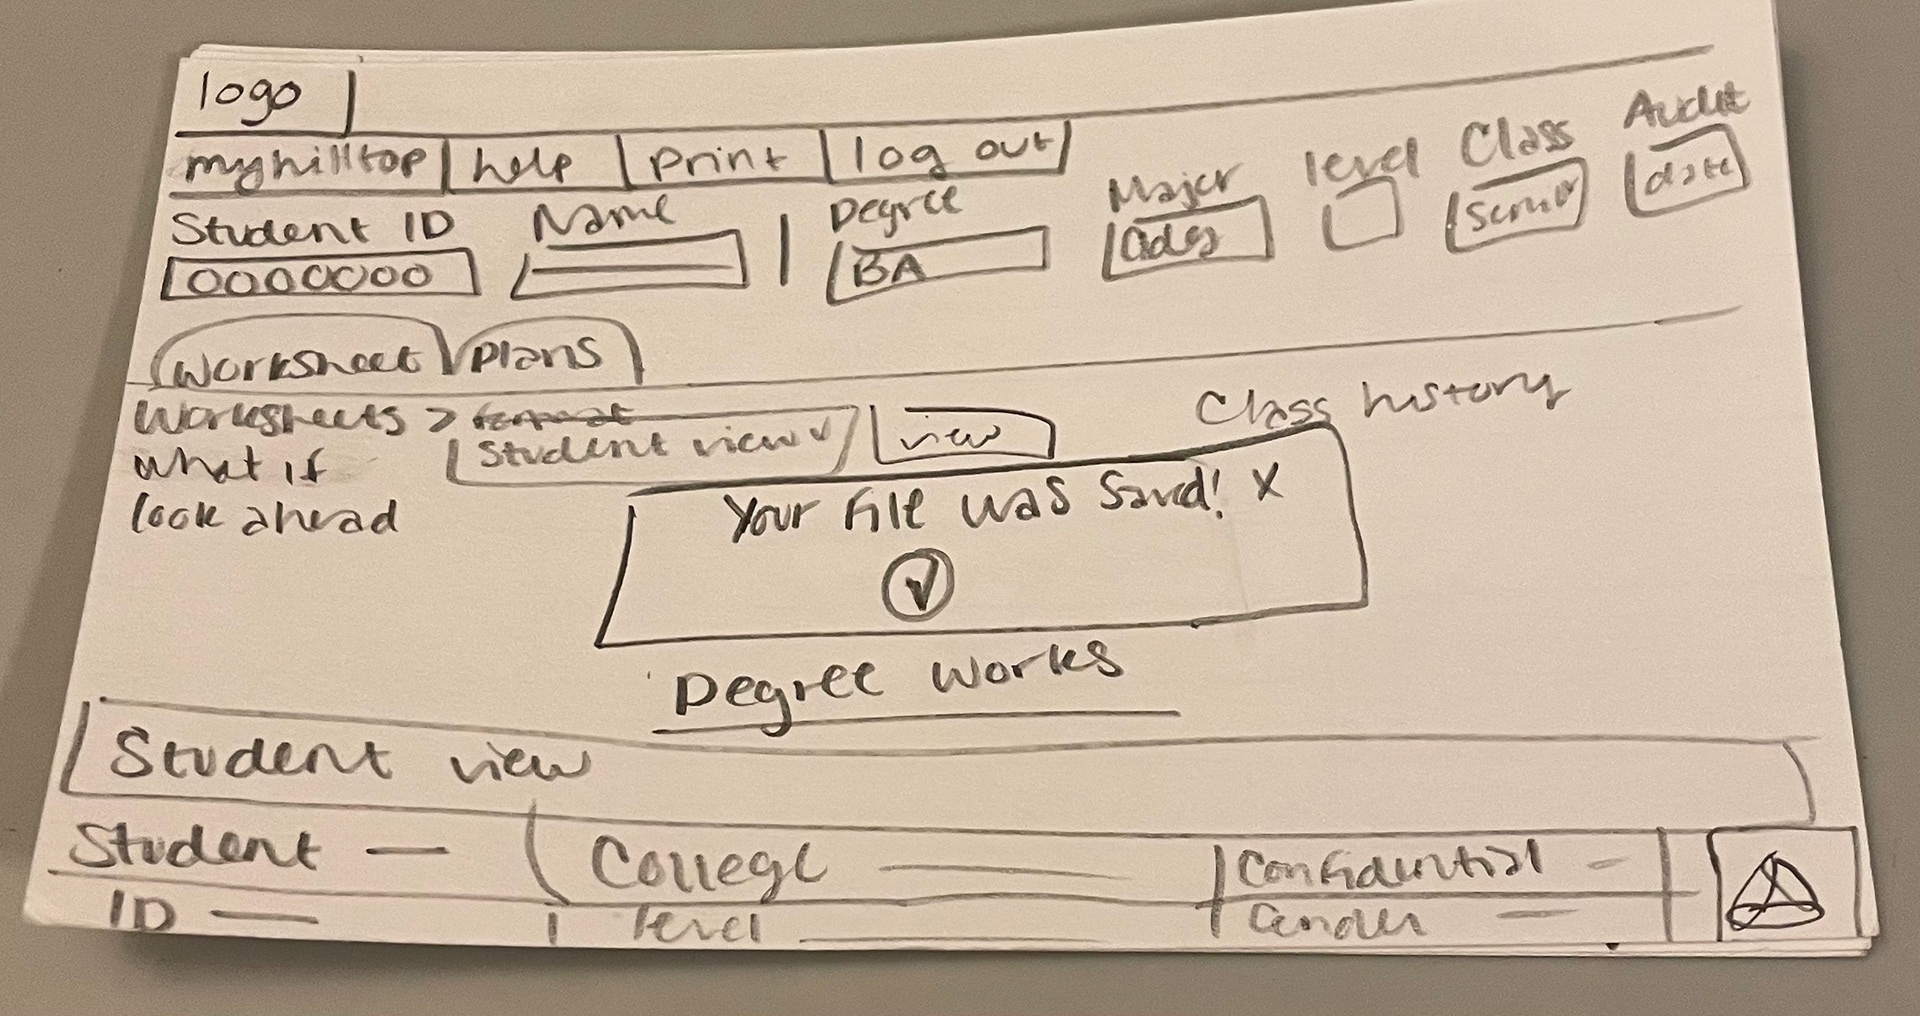 logo
myhilltop help print log out
Student ID Name Degree Major level Class Audit
0000000 BA senior date
Worksheet Plans
Worksheets > format Class history
Student view view
what if
look ahead
Your file was saved! X
Degree Works
Student view
Student College Confidential
ID level Gender